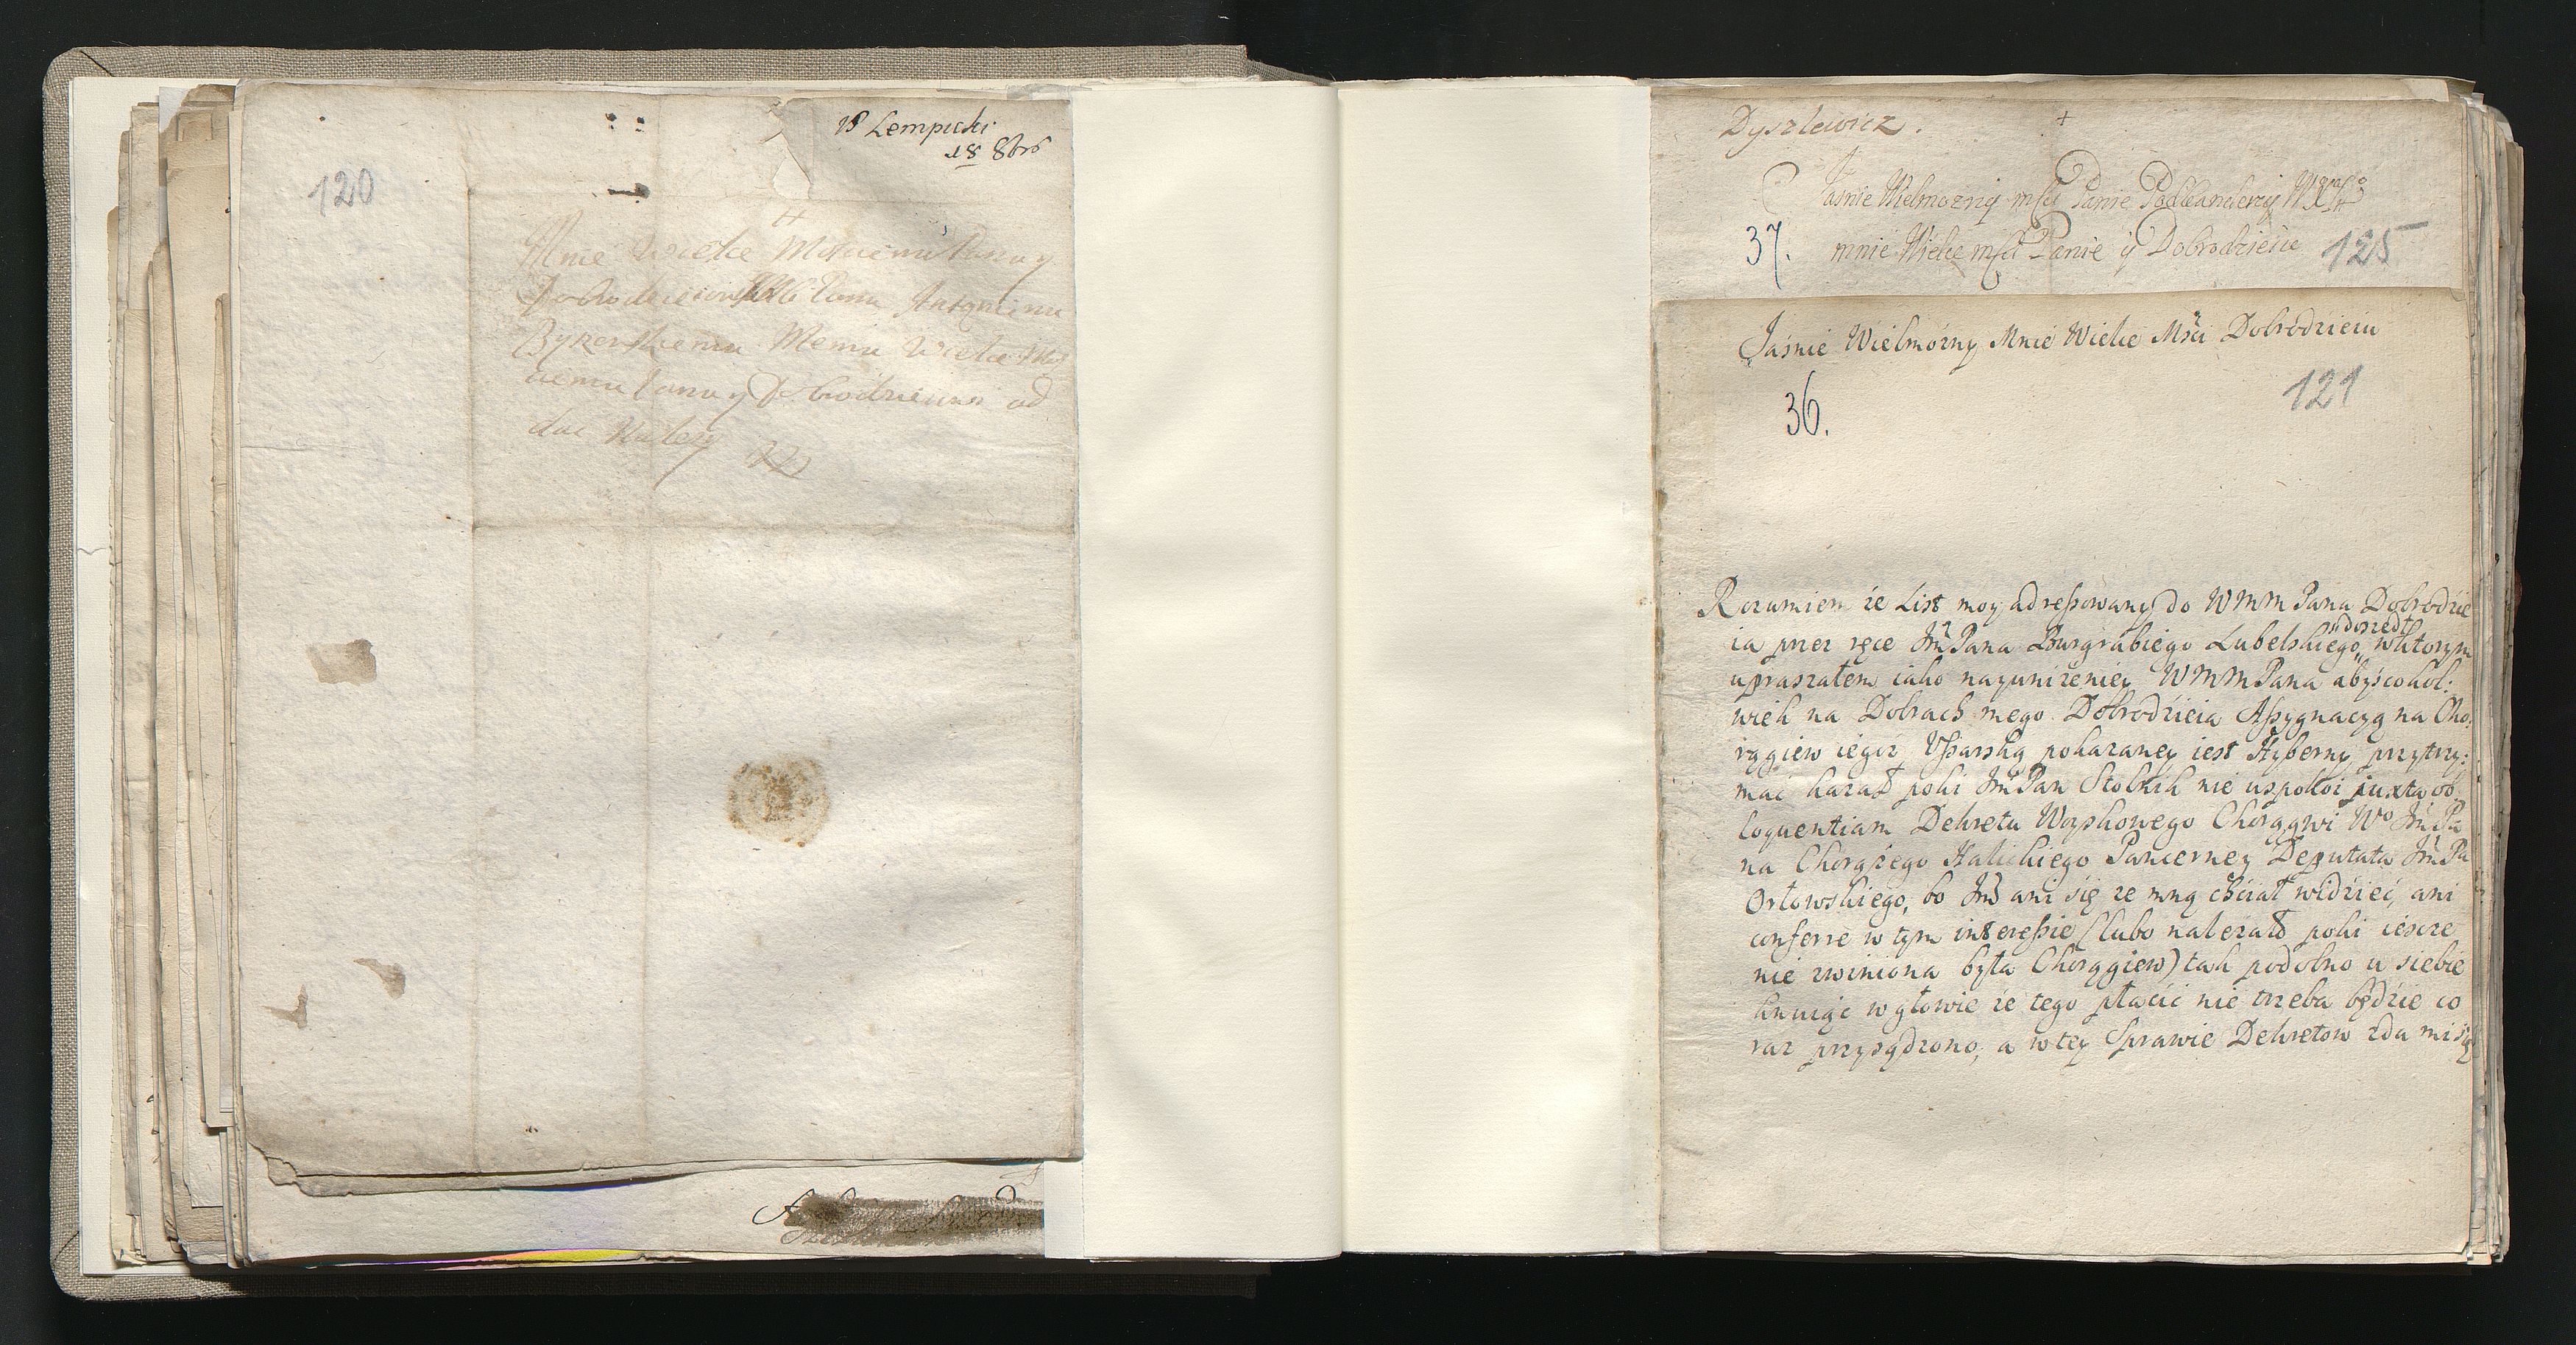 JP Lempicki
18 8bris
120
Mnie Wielce Mosciemu Panu y
Dobrodzieiowi Panu Antoniemu
Memu Wielce Mos
ciemu Panu y Dobrodzieiowi od
dac Nalezy
Dyszlewicz.
Jasnie Wielmozny mści Panie Podkanclerzy
37. mnie Wielce mści Panie y Dobrodzieiu 125
Jaśnie Wielmózny Mnie Wielce Mści Dobrodzieiu
36.
121
Rozumiem że List moy adressowany do WMM Pana Dobrodzie
ia przez ręce Jm Pana Burgrabiego Lubelskiego doszedł, wktorym
upraszałem iako nayuniżeniey WMM Pana abyś cokol:
wiek na Dobrach mego Dobrodzieia Assygnacyą na Cho:
rągiew iegoż Ussarską pokazaney iest Hyberny przytrzy:
mać kazał poki Jm Pan Stolnik nie uspokoi juxta ob
loquentiam Dekretu Woyskowego Chorągwi Wo Jm Pa
na Chorążego Halickiego Pancerney Deputata Jm Pa
Orłowskiego, bo Jm ani się ze mną chciał widzieć, ani
conferre w tym interessie (lubo należało poki iescze
nie zwiniona była Chorągiew) tak podobno u siebie
knuiąc w głowie że tego płacić nie trzeba będzie co
raz przysądzono, a wtey Sprawie Dekretow zda mi się